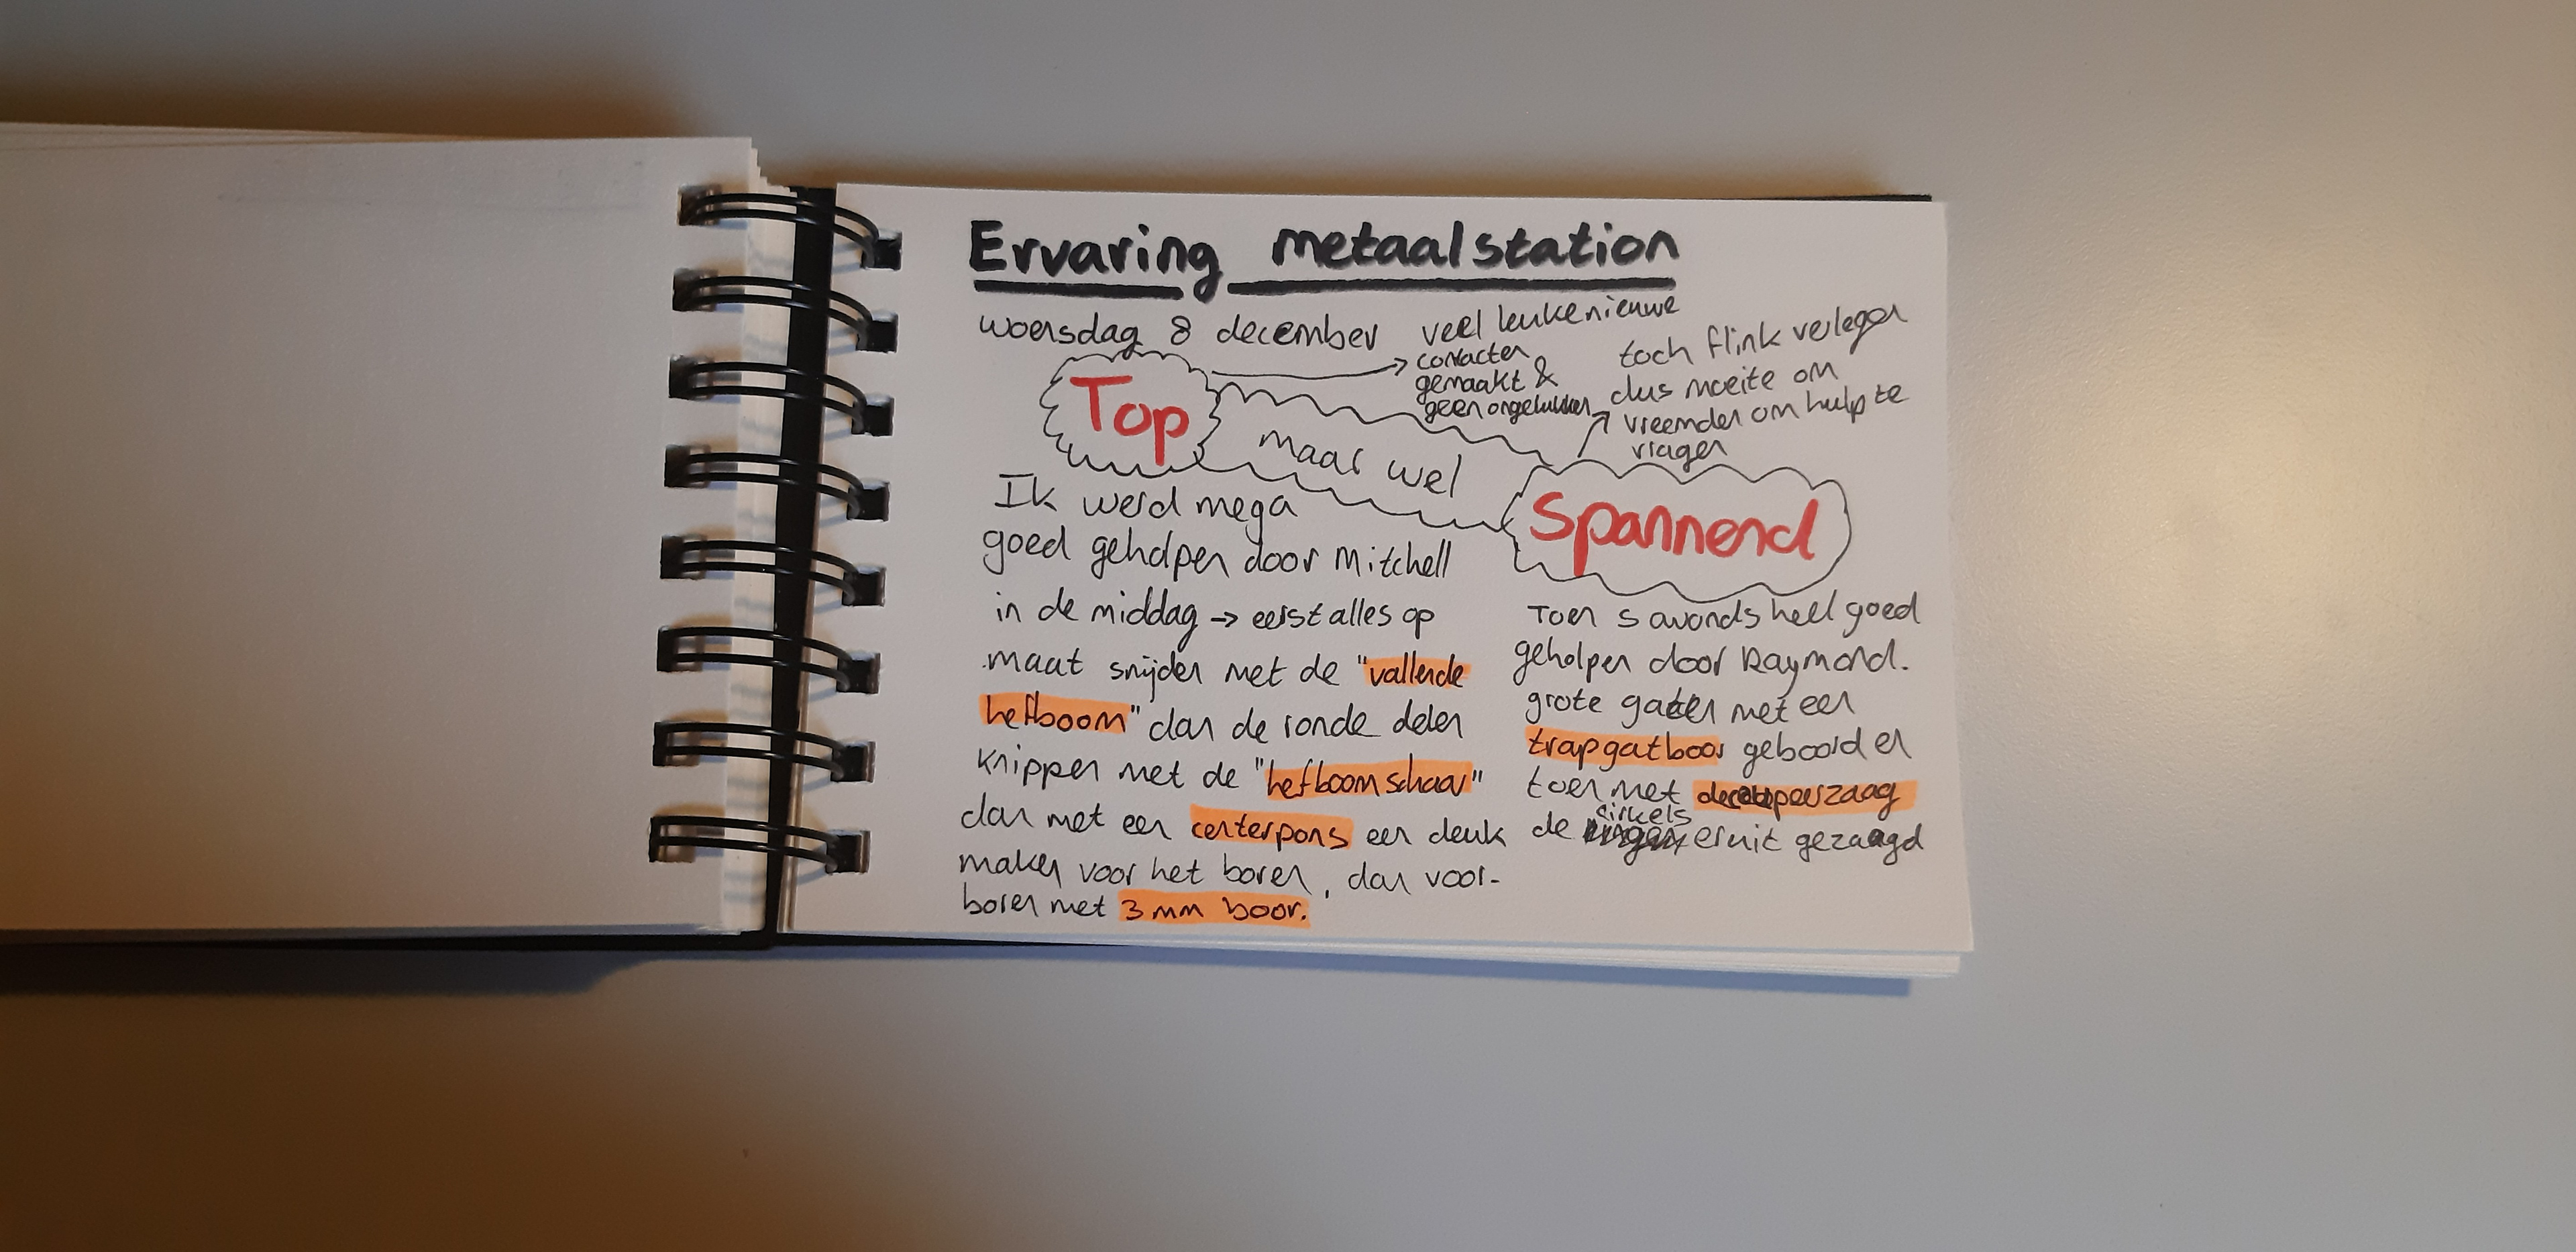 Ervaring metaalstation
woensdag 8 december
Top
veel leuke nieuwe
contacten
gemaakt &
geen ongelukken
maar wel
Spannend
toch flink verlegen
dus moeite om
vreemden om hulp te
vragen
Ik werd mega
goed geholpen door Mitchell
in de middag → eerst alles op
maat snijden met de "vallende
hefboom" dan de ronde delen
knippen met de "hefboomschaar"
dan met een centerpons een deuk
maken voor het boren, dan voor-
boren met 3 mm boor.
Toen s avonds heel goed
geholpen door Raymond.
grote gaten met een
trapgatboor geboord en
toen met decoupeerzaag
de cirkels eruit gezaagd